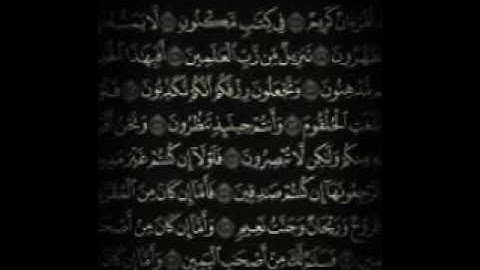 لَقُرْءَانٌ كَرِيمٌ فِى كِتَٰبٍ مَّكْنُونٍ لَّا يَمَسُّهُ
تَنزِيلٌ مِّن رَّبِّ ٱلْعَٰلَمِينَ أَفَبِهَٰذَا
مُّدْهِنُونَ وَتَجْعَلُونَ رِزْقَكُمْ أَنَّكُمْ تُكَذِّبُونَ
ٱلْحُلْقُومَ وَأَنتُمْ حِينَئِذٍ تَنظُرُونَ وَنَحْنُ
مِنكُمْ وَلَٰكِن لَّا تُبْصِرُونَ فَلَوْلَآ إِن كُنتُمْ غَيْرَ
تَرْجِعُونَهَآ إِن كُنتُمْ صَٰدِقِينَ فَأَمَّآ إِن كَانَ مِنَ
فَرَوْحٌ وَرَيْحَانٌ وَجَنَّتُ نَعِيمٍ وَأَمَّآ إِن كَانَ مِنْ
فَسَلَٰمٌ لَّكَ مِنْ أَصْحَٰبِ ٱلْيَمِينِ وَأَمَّآ إِن كَانَ